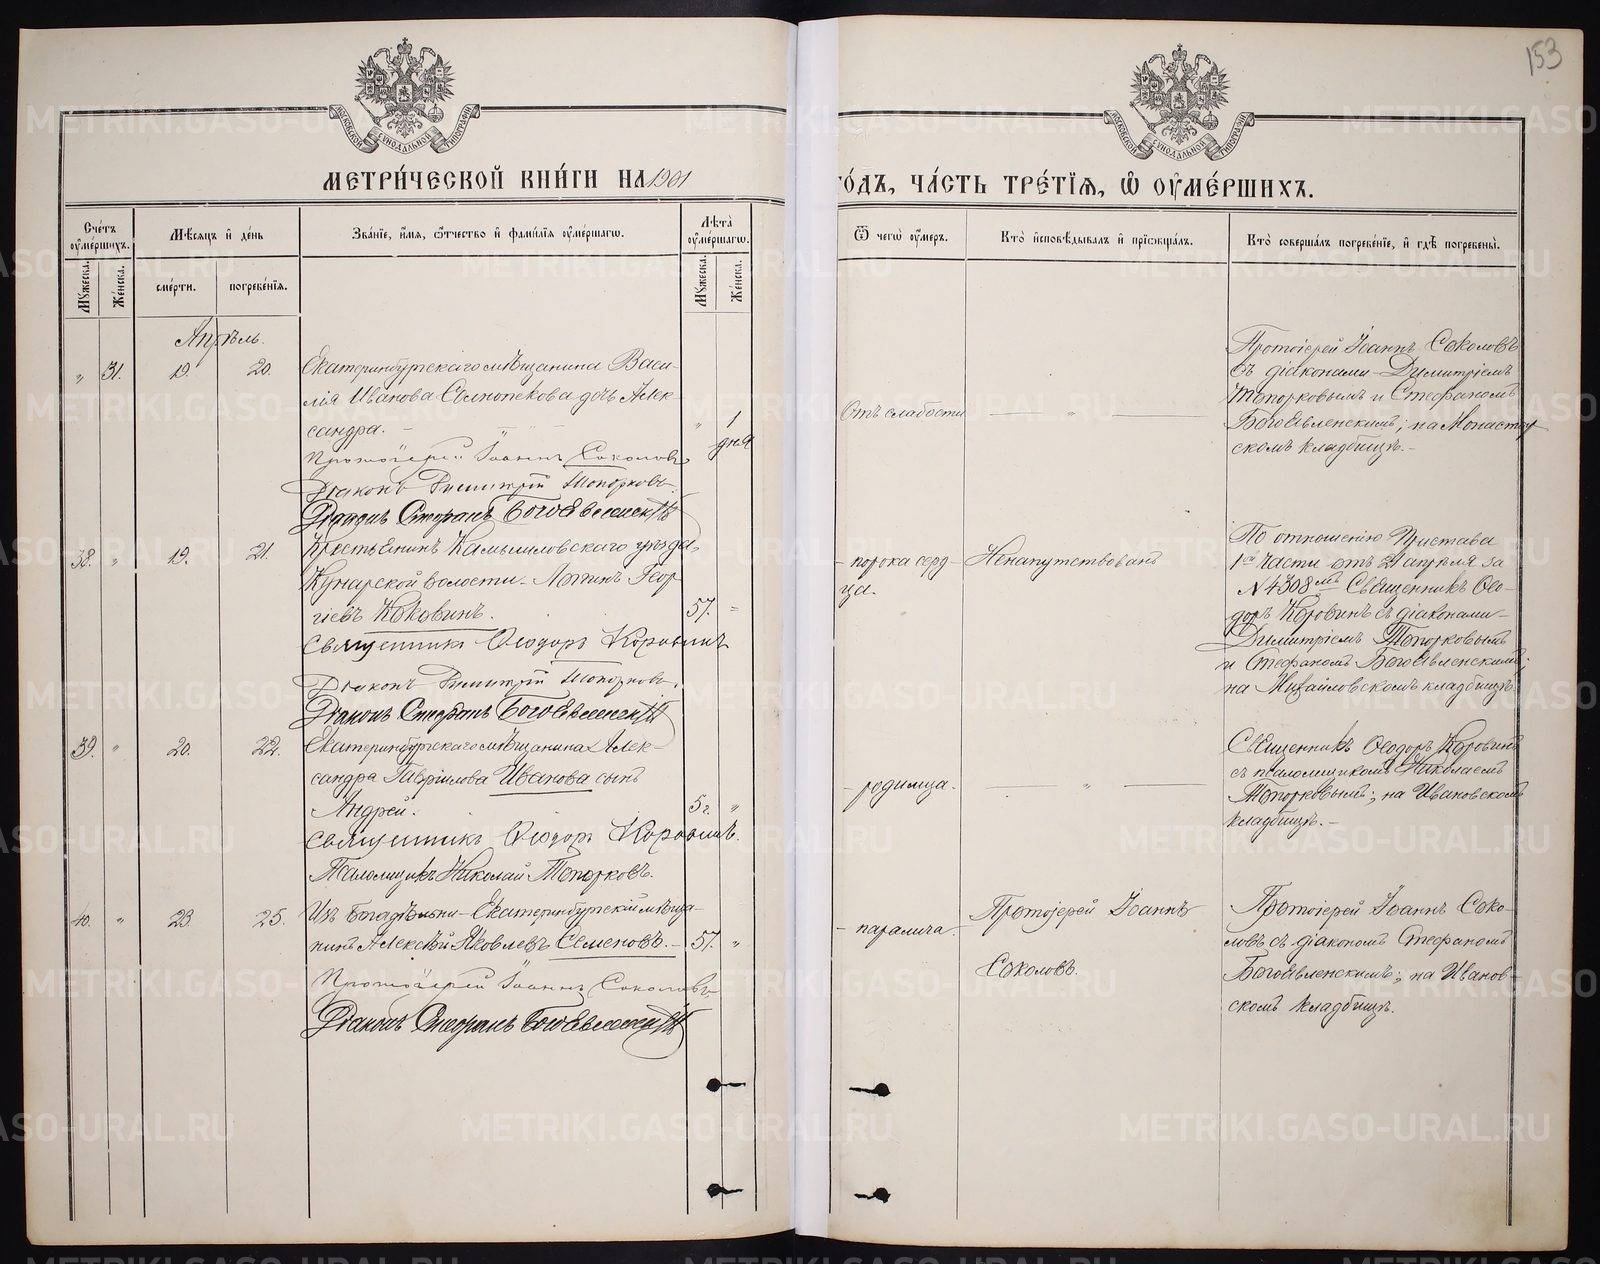 153
МОСКОВСКОЙ СѴНОДАЛЬНОЙ ТИПОГРАФІИ
МОСКОВСКОЙ СѴНОДАЛЬНОЙ ТИПОГРАФІИ
МЕТРИ́ЧЕСКОЙ КНИ́ГИ НА 1901
ГО́ДЪ, ЧА́СТЬ ТРЕ́ТІѦ, Ѽ ОУ҆МЕ́РШИХЪ.
Сче́тъ оу҆ме́ршихъ.
Мꙋ́жеска.
Же́нска.
Мѣ́сяцъ и҆ де́нь
сме́рти.
погребе́нїѧ.
Зва́нїе, и҆́мѧ, ѻ҆́тчество и҆ фамі́лїѧ оу҆ме́ршагѡ.
Лѣ́та оу҆ме́ршагѡ.
Мꙋ́жеска.
Же́нска.
Ѿ чегѡ̀ оу҆́меръ.
Кто̀ и҆сповѣ́дывалъ и҆ прїѡбща́лъ.
Кто̀ соверша́лъ погребе́нїе, и҆ гдѣ̀ погребены̀.
Апрѣль.
„ 31. 19. 20.
Екатеринбургскаго мѣщанина Васи-
лія Иванова дочь Алек-
сандра. — „ —
„ 1 дня
Протоіерей Іоаннъ Соколовъ
Діаконъ Димитрій Топорковъ.
Діаконъ Стефанъ Богоявленскій
Отъ слабости
— „ —
Протоіерей Іоаннъ Соколовъ
съ діаконами Димитріемъ
Топорковымъ и Стефаномъ
Богоявленскимъ; на Монастыр
скомъ кладбищѣ. —
38. „ 19. 21.
Крестьянинъ Камышловскаго уѣзда,
Кунарской волости Логинъ Геор
гіевъ Коковинъ.
57. „
Священникъ Ѳеодоръ Коровинъ
Діаконъ Димитрій Топорковъ.
Діаконъ Стефанъ Богоявленскій
— порока серд-
ца.
Ненапутствованъ
По отношенію Пристава
1ой части отъ 21 апрѣля за
№ 4308мъ Священникъ Ѳео-
доръ Коровинъ съ діаконами
Димитріемъ Топорковымъ
и Стефаномъ Богоявленскимъ;
на Михайловскомъ кладбищѣ.
39. „ 20. 22.
Екатеринбургскаго мѣщанина Алек-
сандра Гавріилова Иванова сынъ
Андрей.
5 г. „
Священникъ Ѳеодоръ Коровинъ.
Псаломщикъ Николай Топорковъ.
— родимца.
— „ —
Священникъ Ѳеодоръ Коровинъ
съ псаломщикомъ Николаемъ
Топорковымъ; на Ивановскомъ
кладбищѣ. —
40. „ 23. 25.
Изъ Богадѣльни Екатеринбургскій мѣща-
нинъ Алексѣй Яковлевъ Семеновъ. —
57. „
Протоіерей Іоаннъ Соколовъ
Діаконъ Стефанъ Богоявленскій
— паралича.
Протоіерей Іоаннъ
Соколовъ.
Протоіерей Іоаннъ Соко-
ловъ съ діакономъ Стефаномъ
Богоявленскимъ; на Иванов
скомъ кладбищѣ.
METRIKI.GASO-URAL.RU